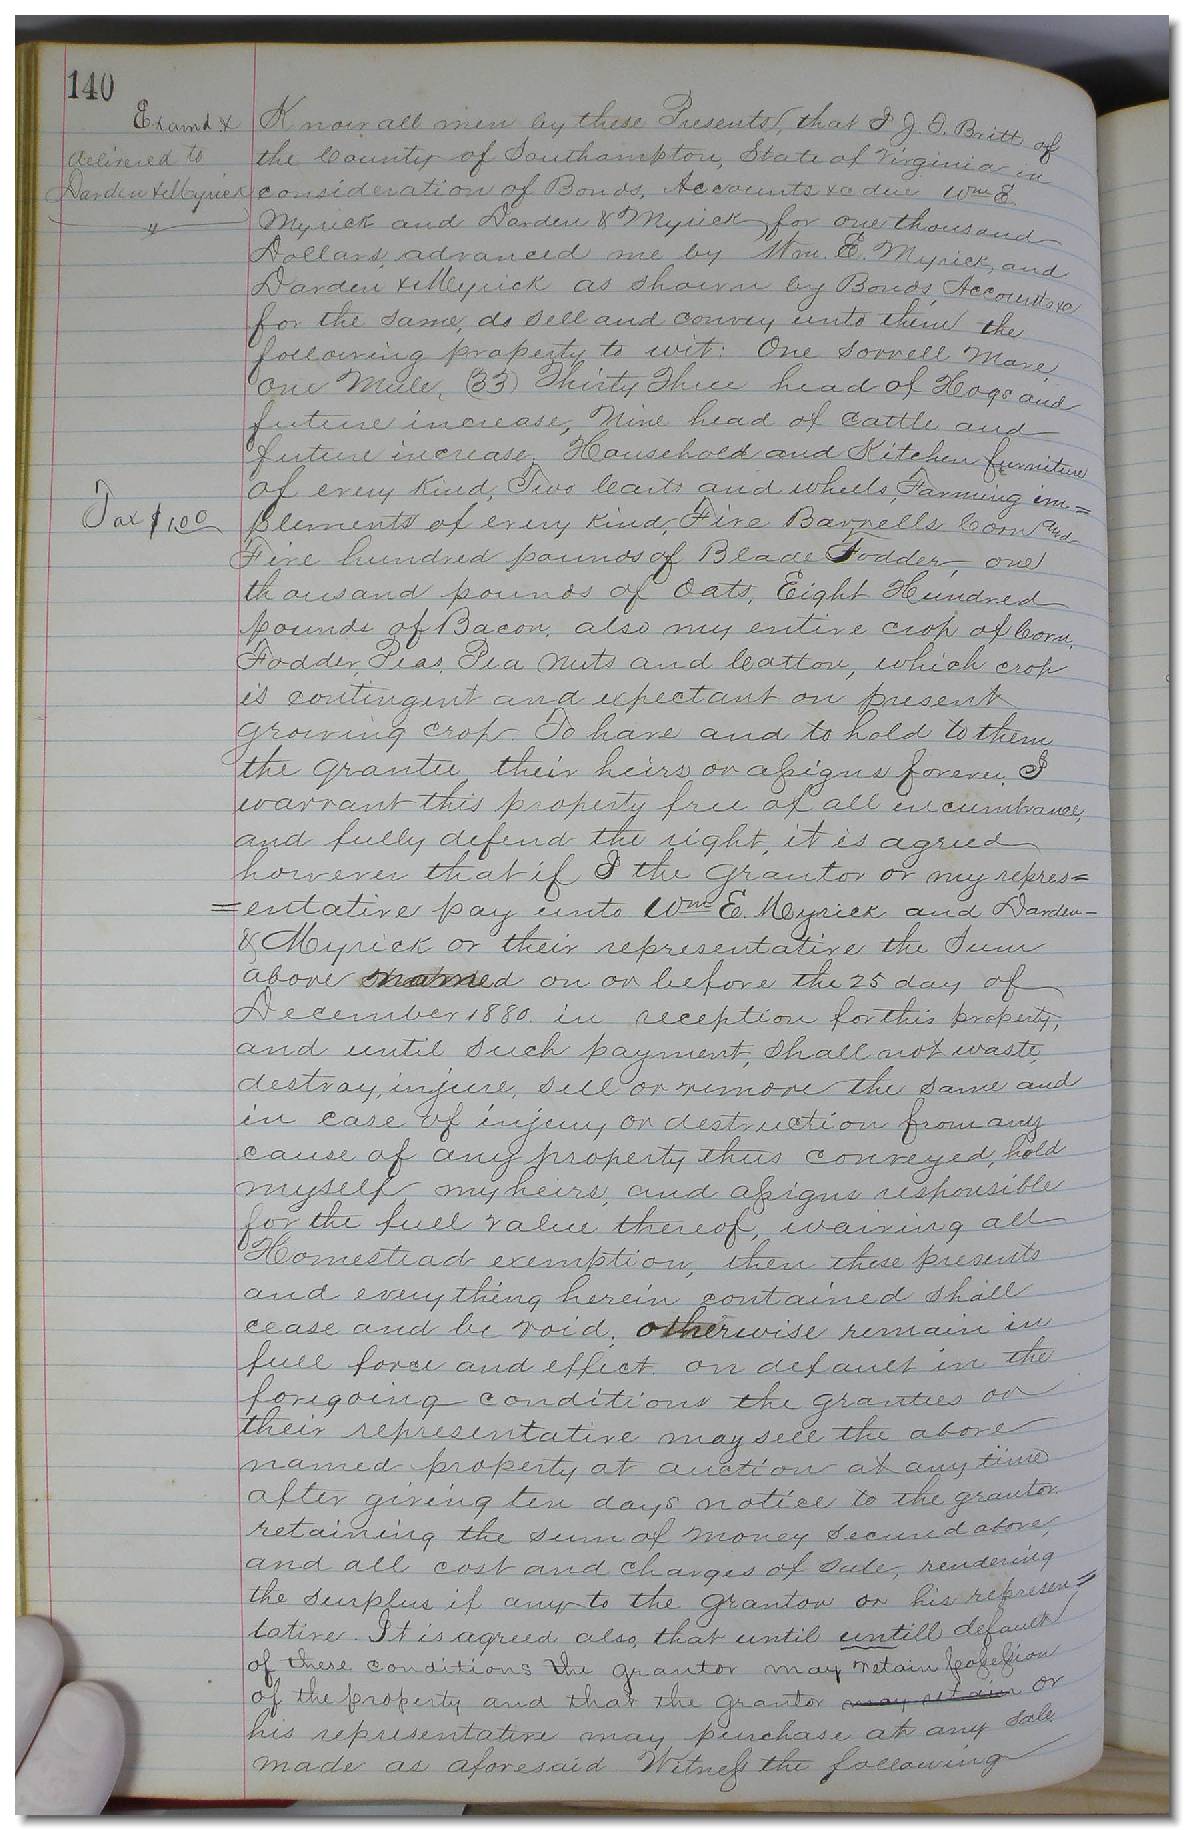 140
Examd &
delivered to
Darden & Myrick
"
Tax $1.00
Know all men by these Presents, that I J. I. Britt of
the County of Southampton, State of Virginia in
consideration of Bonds, Accounts &c due Wm E.
Myrick and Darden & Myrick for one thousand
Dollars, advanced me by Wm. E. Myrick, and
Darden & Myrick as shown by Bonds, Accounts &c
for the same, do sell and convey unto them the
following property to wit: One Sorrell Mare,
one Mule, (33) Thirty Three head of Hogs and
future increase, Nine head of Cattle and
future increase, Household and Kitchen furniture
of every Kind, Two Carts and wheels, Farming im=
plements of every Kind, Five Barrells Corn and
Five hundred pounds of Blade Fodder, one
thousand pounds of Oats, Eight Hundred
pounds of Bacon, also my entire crop of Corn,
Fodder, Peas, Pea Nuts and Cotton, which crop
is contingent and expectant on present
growing crop. To have and to hold to them
the grantee, their heirs or assigns forever. I
warrant this property free of all encumbrance,
and fully defend the right, it is agreed
however that if I the grantor or my repres=
=entative pay unto Wm E. Myrick and Darden
& Myrick or their representative the Sum
above named on or before the 25 day of
December 1880. in reception for this property,
and until such payment, shall not waste,
destroy, injure, sell or remove the same and
in case of injury or destruction from any
cause of any property thus conveyed, hold
myself, my heirs, and assigns responsible
for the full value thereof, waiving all
Homestead exemption, then these presents
and everything herein contained shall
cease and be void, otherwise remain in
full force and effect. on default in the
foregoing conditions the grantees or
their representative may sell the above
named property at auction at any time
after giving ten days notice to the grantor
retaining the sum of money secured above,
and all cost and charges of sale, rendering
the surplus if any to the grantor or his represen=
tative. It is agreed also, that until untill default
of these conditions the grantor may retain possession
of the property and that the grantor may retain or
his representative may purchase at any sale
made as aforesaid Witness the following